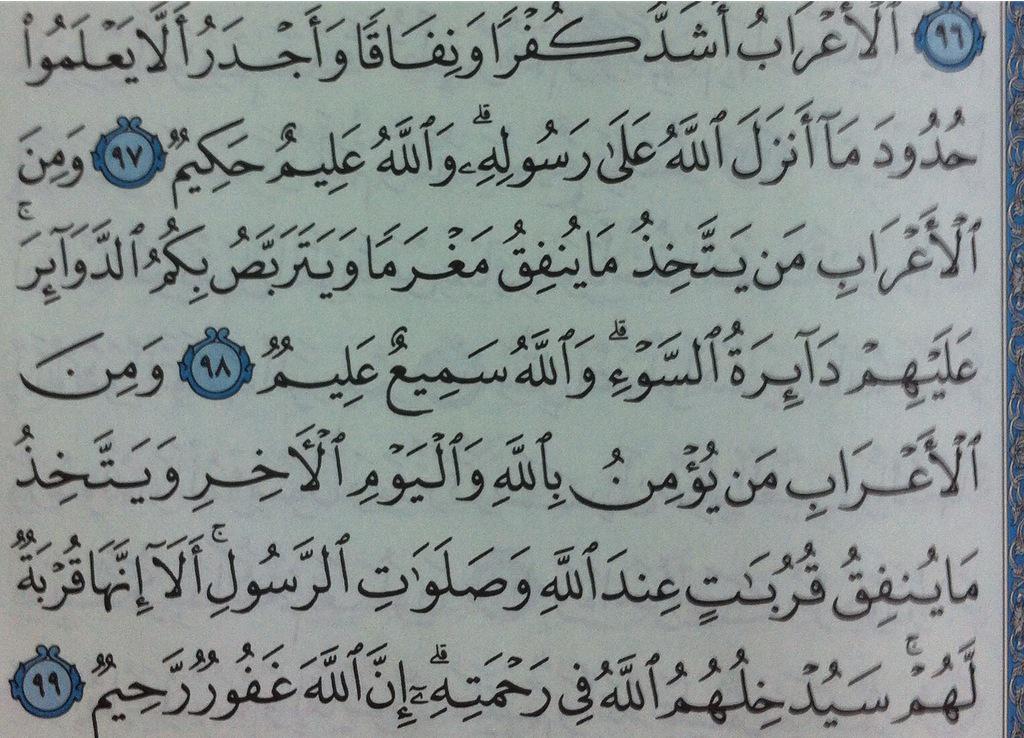 ٩٦ ٱلْأَعْرَابُ أَشَدُّ كُفْرًا وَنِفَاقًا وَأَجْدَرُ أَلَّا يَعْلَمُوا۟
حُدُودَ مَآ أَنزَلَ ٱللَّهُ عَلَىٰ رَسُولِهِۦ ۗ وَٱللَّهُ عَلِيمٌ حَكِيمٌ ٩٧ وَمِنَ
ٱلْأَعْرَابِ مَن يَتَّخِذُ مَا يُنفِقُ مَغْرَمًا وَيَتَرَبَّصُ بِكُمُ ٱلدَّوَآئِرَ ۚ
عَلَيْهِمْ دَآئِرَةُ ٱلسَّوْءِ ۗ وَٱللَّهُ سَمِيعٌ عَلِيمٌ ٩٨ وَمِنَ
ٱلْأَعْرَابِ مَن يُؤْمِنُ بِٱللَّهِ وَٱلْيَوْمِ ٱلْأَخِرِ وَيَتَّخِذُ
مَا يُنفِقُ قُرُبَـٰتٍ عِندَ ٱللَّهِ وَصَلَوَٰتِ ٱلرَّسُولِ ۚ أَلَآ إِنَّهَا قُرْبَةٌ
لَّهُمْ ۚ سَيُدْخِلُهُمُ ٱللَّهُ فِى رَحْمَتِهِۦٓ ۗ إِنَّ ٱللَّهَ غَفُورٌ رَّحِيمٌ ٩٩